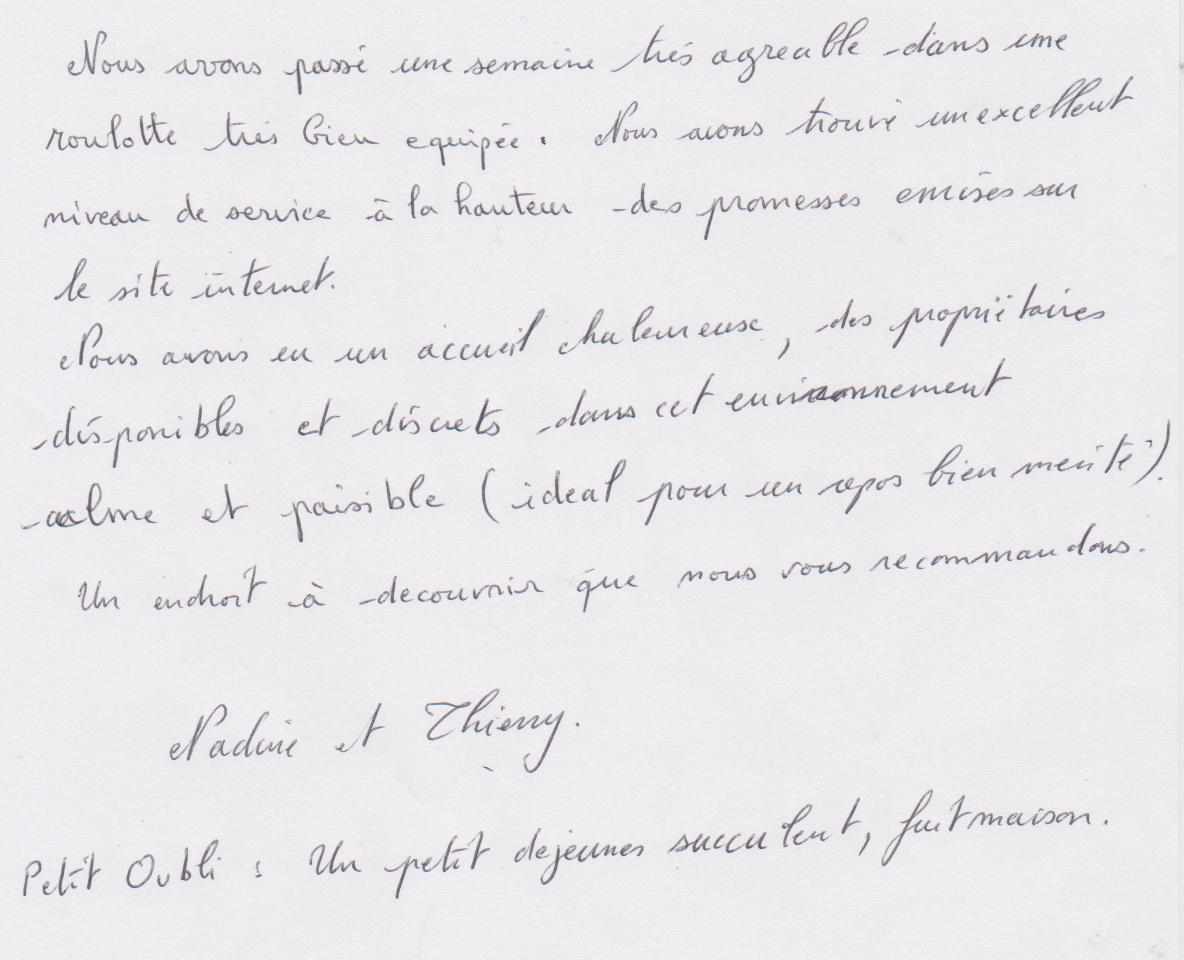 Nous avons passé une semaine trés agreable dans une
roulotte trés bien equipée. Nous avons trouvé un excellent
niveau de service à la hauteur des promesses emises sur
le site internet.
Nous avons eu un accueil chaleureuse, des propriétaires
disponibles et discrets dans cet environnement
calme et paisible (ideal pour un repos bien merité).
Un endroit à decouvrir que nous vous recommandons.
Nadine et Thierry.
Petit Oubli : Un petit dejeunes succulent, fait maison.